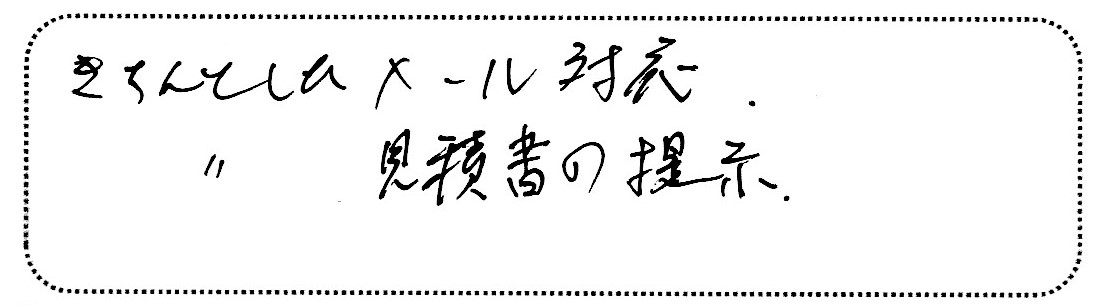 きちんとした メール対応.
〃 見積書の提示.